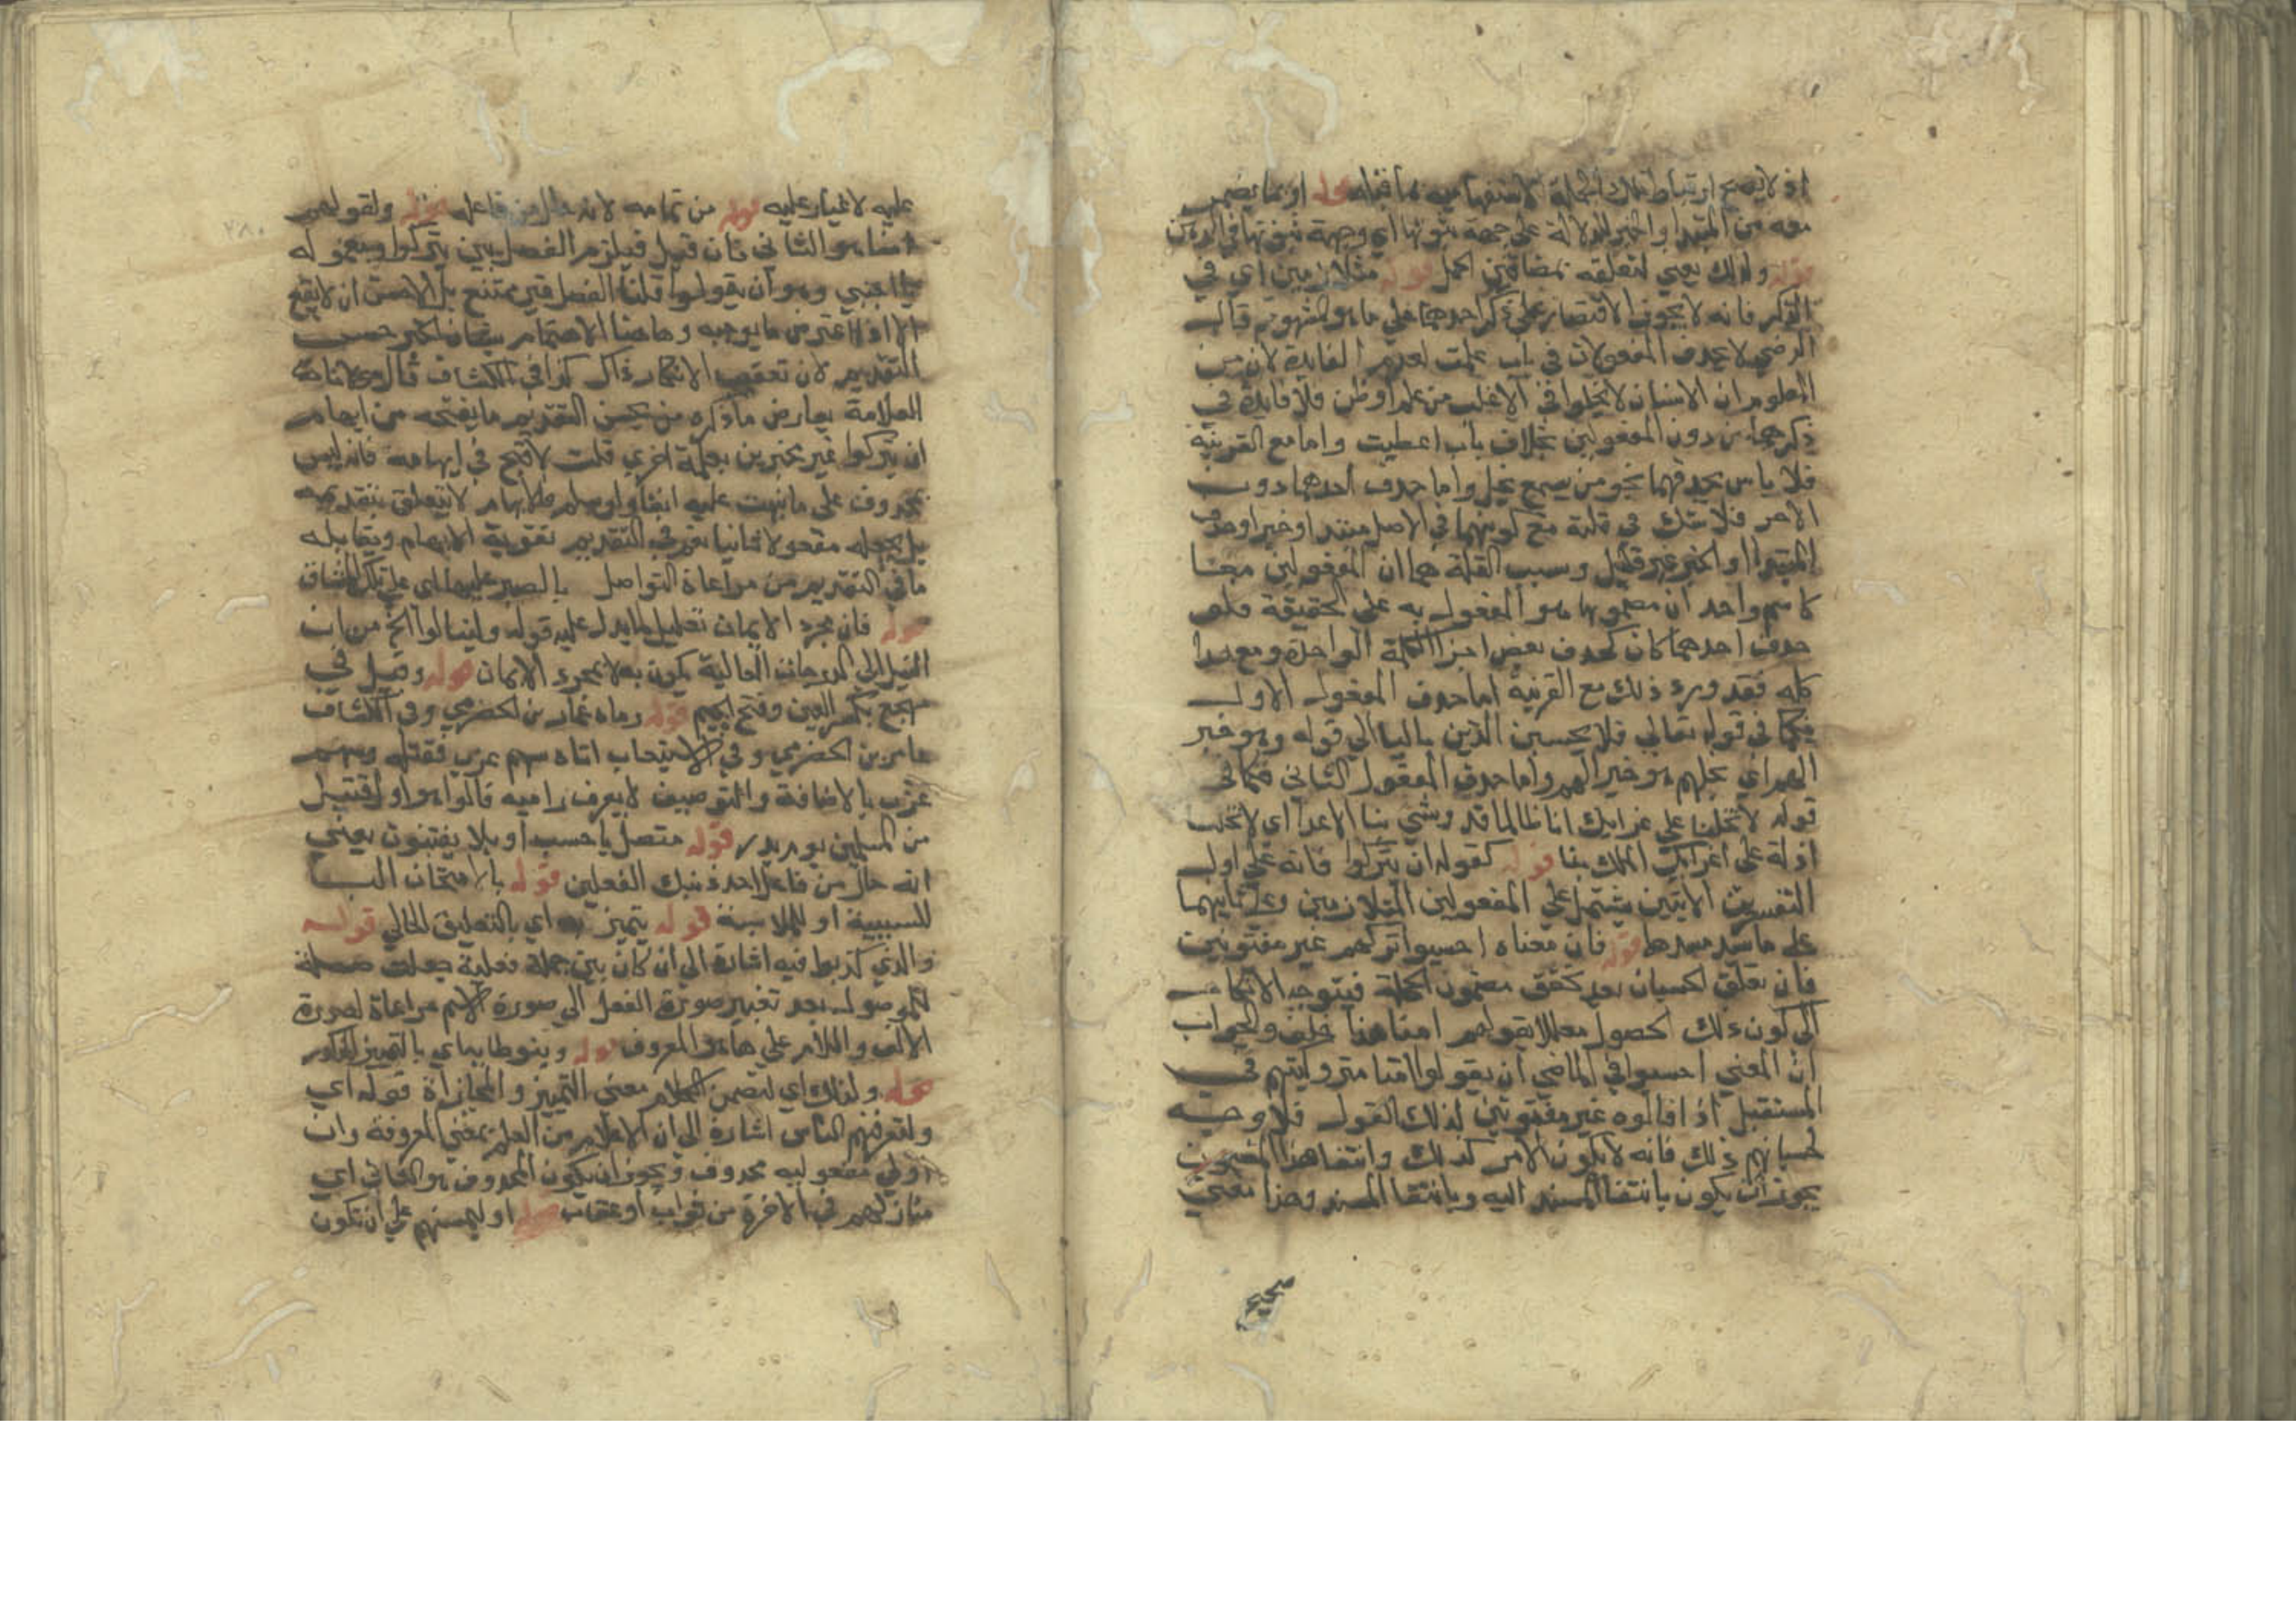 اذ لا يصح ارتباط تلك الجملة الاستفهامية بما قبله قوله او بما يضمر
معه من المبتدا والخبر للدلالة على جهة ثبوتها اي وجهة ثبوتها في الذهن
قوله ولذلك يعني لتعلقه بمضامين الجمل قوله متلازمين اي في
الذكر فانه لا يجوز الاقتصار على ذكر احدهما على ما هو المشهور قال
الرضي لا يحذف المفعولان في باب علمت لعدم الفايدة لان من
المعلوم ان الانسان لا يخلوا في الاغلب من علم او ظن فلا فايدة في
ذكرهما من دون المفعولين بخلاف باب اعطيت واما مع القرينة
فلا باس بحذفهما نحو من يسمع يخل واما حذف احدهما دون
الاخر فلا شك في قلته مع كونهما في الاصل مبتدا وخبرا وحذف
المبتدا او الخبر غير قليل وسبب القلة هما ان المفعولين معا
كاسم واحد ان مضمونهما هو المفعول به على الحقيقة فلو
حذف احدهما كان كحذف بعض اجزا الكلمة الواحدة ومع هذا
كله فقد ورد ذلك مع القرينة اما حذف المفعول الاول
فكما في قوله تعالى فلا يحسبن الذين باليا الى قوله هو خير
لهم اي بخلهم هو خير لهم واما حذف المفعول الثاني فكما في
قوله لا تخلنا على غرائك انا طالما قد وشي بنا الاعدا اي لا تخلنا
اذلة على اغرائك الملك بنا قوله كقوله ان يتركوا فانه على اول
التفسيرين الاتيين مشتمل على المفعولين المتلازمين وعلى ثانيهما
على ما سد مسدهما قوله فان معناه احسبوا تركهم غير مفتونين
فان تعلق الحسبان بعد تحقق مضمون الجملة فيتوجه الانكار
الى كون ذلك الحصول معللا بقولهم امنا هذا خلف والجواب
ان المعني احسبوا في الماضي ان يقولوا امنا متروكيتهم في
المستقبل اذا قالوه غير مفتونين لذلك القول فلا وجه
لحسبانهم ذلك فانه لا يكون الامر كذلك وانتفا هذا المضمون
يجوز ان يكون بانتفا المسند اليه وبانتفا المسند وهذا معنى
صحيح
عليه لا غبار عليه قوله من تمامه لانه حال من فاعله قوله ولقولهم
امنا هو الثاني فان قيل فيلزم الفصل بين يتركوا ومعموله
باجنبي وهو ان يقولوا قلنا الفصل غير ممتنع بل الاحسن ان لا يقع
الا اذا اعترض ما يوجبه وهاهنا الاهتمام بشان الخبر حسن
التقديم لان تعقب الانكار ذاك كذا في الكشاف قال مولانا
العلامة يعارض ما ذكره من يحسن التقديم ما يفتحه من ايهام
ان يتركوا غير مخبرين بعلة اخرى قلت لا قبح في ايهامه فانه ليس
بمحذوف على ما نبهت عليه انفا ولو سلم فالايهام لا يتعلق بتقديمه
بل بجعله مفعولا ثانيا نعم في التقديم تقوية الايهام ويقابله
ما في التقديم من مراعاة التواصل بالصبر عليها اي على تلك المشاق
قوله فان مجرد الايمان تعليل لما يدل عليه قوله ولينالوا الخ من ان
النيل الى الدرجات العالية يكون به لا بمجرد الايمان قوله وقيل في
مهجع بكسر العين وفتح الجيم قوله رماه عمار بن الحضرمي وفي الكشاف
عامر بن الحضرمي وفي الاستيعاب اتاه سهم غرب فقتله وسهم
غرب بالاضافة والتوصيف لا يعرف راميه قالوا هو اول قتيل
من المسلمين يوم بدر قوله متصل باحسب او بلا يفتنون يعني
انه حال من فاعل احد ذينك الفعلين قوله بالامتحان البا
للسببية او للملابسة قوله يتميز به اي بالتعليق الحالي قوله
والذين كذبوا فيه اشارة الى ان كاذبين جملة فعلية جعلت صلة
للموصول بعد تغيير صورة الفعل الى صورة الاسم مراعاة لصورة
الالف واللام على ما هو المعروف قوله وينوط به اي بالتمييز المذكور
قوله ولذلك اي لتضمن الكلام معنى التمييز والمجازاة قوله اي
وليعرفنهم الناس اشارة الى ان الاعلام من العلم بمعنى المعرفة وان
اولي مفعوليه محذوف ويجوز ان يكون المحذوف هو الثاني اي
منازلهم في الاخرة من ثواب او عقاب قوله او ليسمنهم على ان تكون
٢٨٠